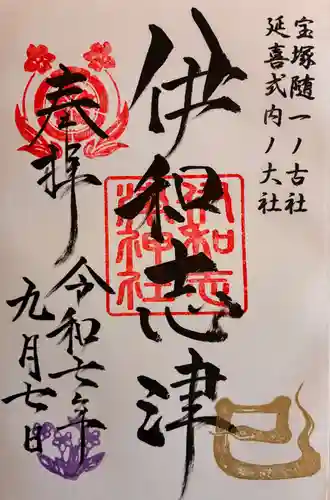 宝塚随一ノ古社
延喜式内ノ大社
伊和志津
伊和志
津神社
奉拝
令和七年
九月七日